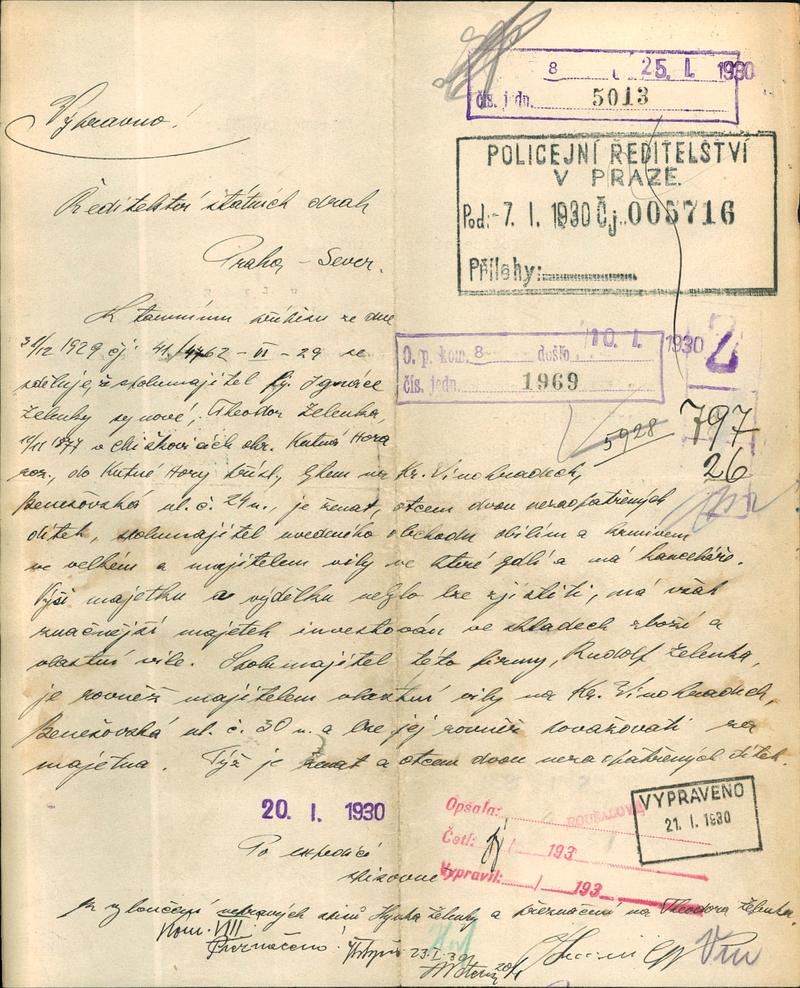 8 25. I. 1930
čís. jedn. 5013
Výpravno!
POLICEJNÍ ŘEDITELSTVÍ
V PRAZE.
Pod: -7. I. 1930 Čj. 005716
Přílohy:
Ředitelství státních drah
Praha, - Sever.
K tamnímu přípisu ze dne
31/12 1929 čj. 41. - VI - 29 se
O. p. kom. 8 došlo 10. I. 1930
čís. jedn. 1969
sděluje, že spolumajitel fy. Ignáce
Zelenky synové, Theodor Zelenka,
5928
797
26
1877 v okr. Kutná Hora
nar., do Kutné Hory přísl., bytem na Kr. Vinohradech,
Benešovská ul. č. 24 n., je ženat, otcem dvou nezaopatřených
dítek, spolumajitel uvedeného obchodu obilím a krmivem
ve velkém a majitelem vily ve které bydlí a má kanceláře.
Výši majetku a výdělku nebylo lze zjistiti, má však
značnější majetek investován ve skladech zboží a
vlastní vile. Spolumajitel této firmy, Rudolf Zelenka,
je rovněž majitelem vlastní vily na Kr. Vinohradech,
Benešovská ul. č. 30 n. a lze jej rovněž považovati za
majetna. Týž je ženat a otcem dvou nezaopatřených dítek.
20. I. 1930
Opsala: ROUSALOVÁ
Četl: / 193
Vypravil: / 193
VYPRAVENO
21. I. 1930
Po expedici
spisovně
k vyloučení nepravých spisů Hynka Zelenky a přeznačení na Theodora Zelenka.
Hom. VIII
Přeznačeno!
23.I.30